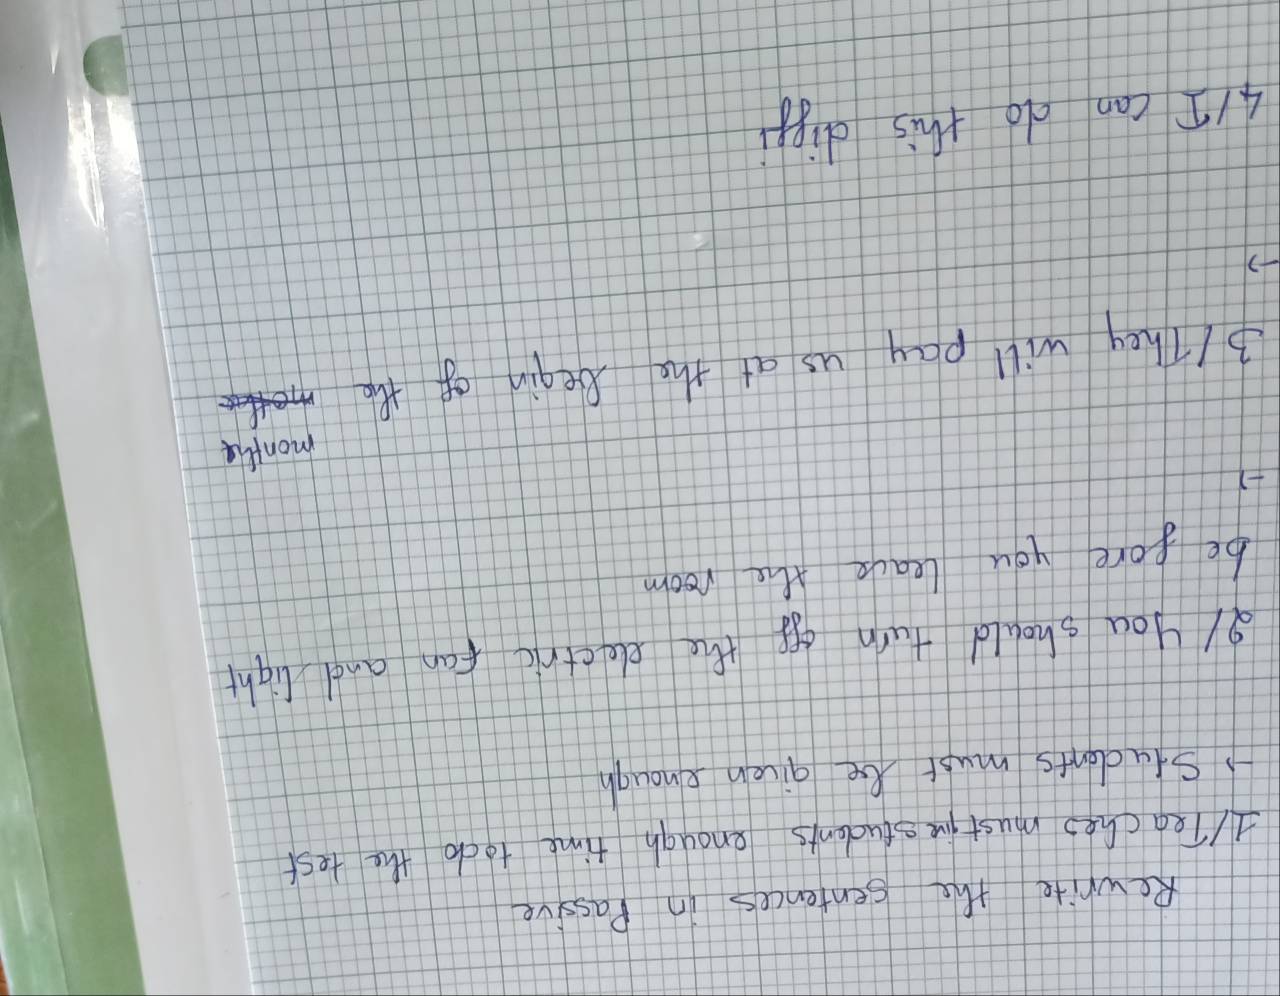 Rewrite the sentences in Passive
1/ Teaches must give students enough time to do the test
→ Students must be given enough
2/ You should turn off the electric fan and light
be fore you leave the room
→
3/ They will pay us at the begin of the
monthe
→
4/ I can do this diffi